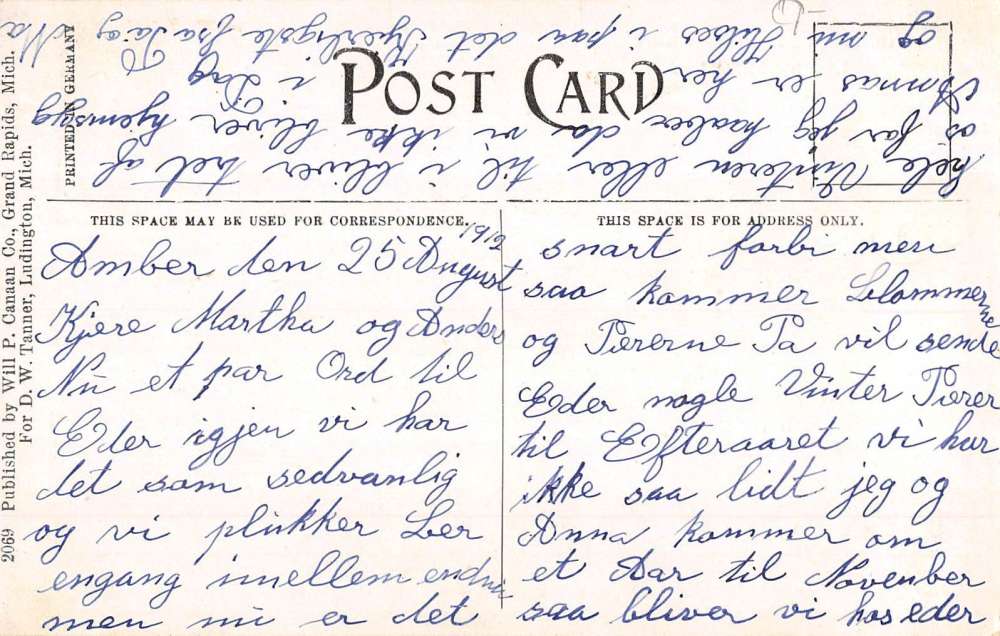 POST CARD
THIS SPACE MAY BE USED FOR CORRESPONDENCE.
THIS SPACE IS FOR ADDRESS ONLY.
PRINTED IN GERMANY
2069 Published by Will P. Canaan Co., Grand Rapids, Mich.
For D. W. Tanner, Ludington, Mich.
Amber den 25 August 1912
Kjere Martha og Anders
Nu et par Ord til
Eder igjen vi har
det som sedvanlig
og vi plukker Ber
engang imellem endnu
men nu er det
snart forbi men
saa kommer Blommerne
og Pærerne Pa vil sende
Eder nogle Vinter Pærer
til Efteraaret vi har
ikke saa lidt jeg og
Anna kommer om
et Aar til November
saa bliver vi hos eder
hele Vinteren eller til i bliver træt af
os for jeg haaber da vi ikke bliver hjemsyg
Annas er her i Dag
og nu Hilses i paa det Kjerligste fra og
Ma